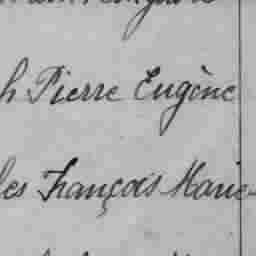 h Pierre Eugène
les François Marie